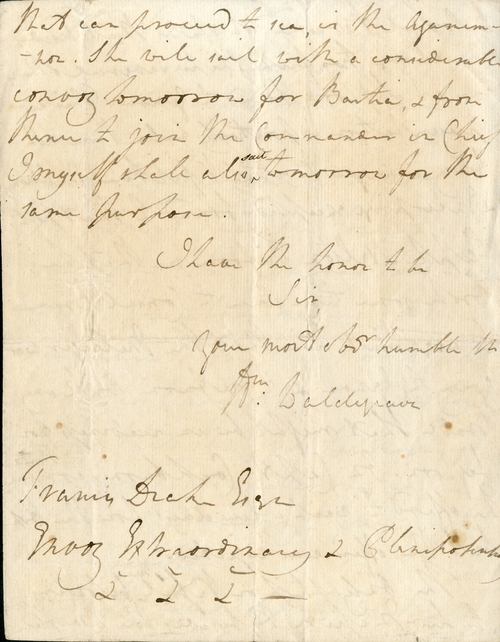 that can proceed to sea, is the Agamem-
-non. She will sail with a considerable
convoy tomorrow for Bastia, & from
thence to join the Commander in Chief
I myself shall also sail tomorrow for the
same purpose.
I have the honor to be
Sir,
your most obdt humble St
Wm: Waldegrave
Francis Drake Esqr
Envoy Extraordinary & Plenipotentiary
& & & —